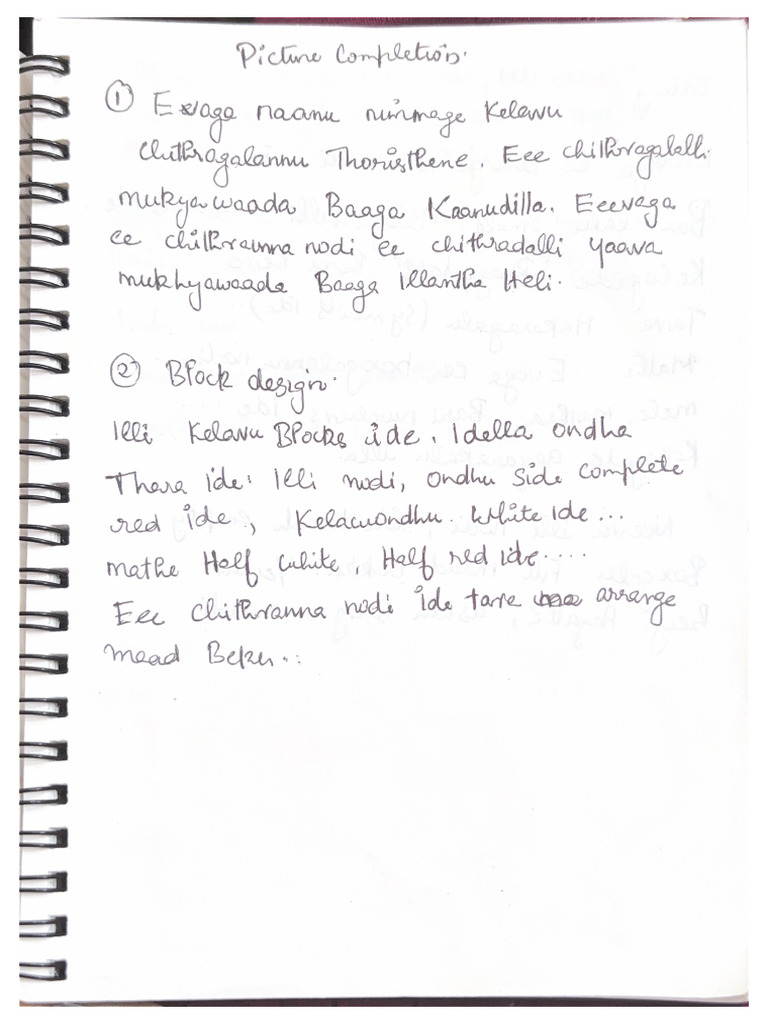 Picture Completion.
① Evaga naanu nimmage Kelavu
Chithragalannu Thoristhene. Eee chithragalalli
mukyawaada Baaga Kaanudilla. Eeevaga
ee chithraunna nodi ee chithradalli yaava
mukhyawaada Baaga Illantha Heli.
② Block design.
Illi Kelavu Blocks ide. Idella ondha
Thara ide. Illi nodi, Ondhu Side complete
red ide, Kelavuondhu White ide...
mathe Half white, Half red ide.....
Eee Chithranna nodi ide tare arrange
maad Beku..: